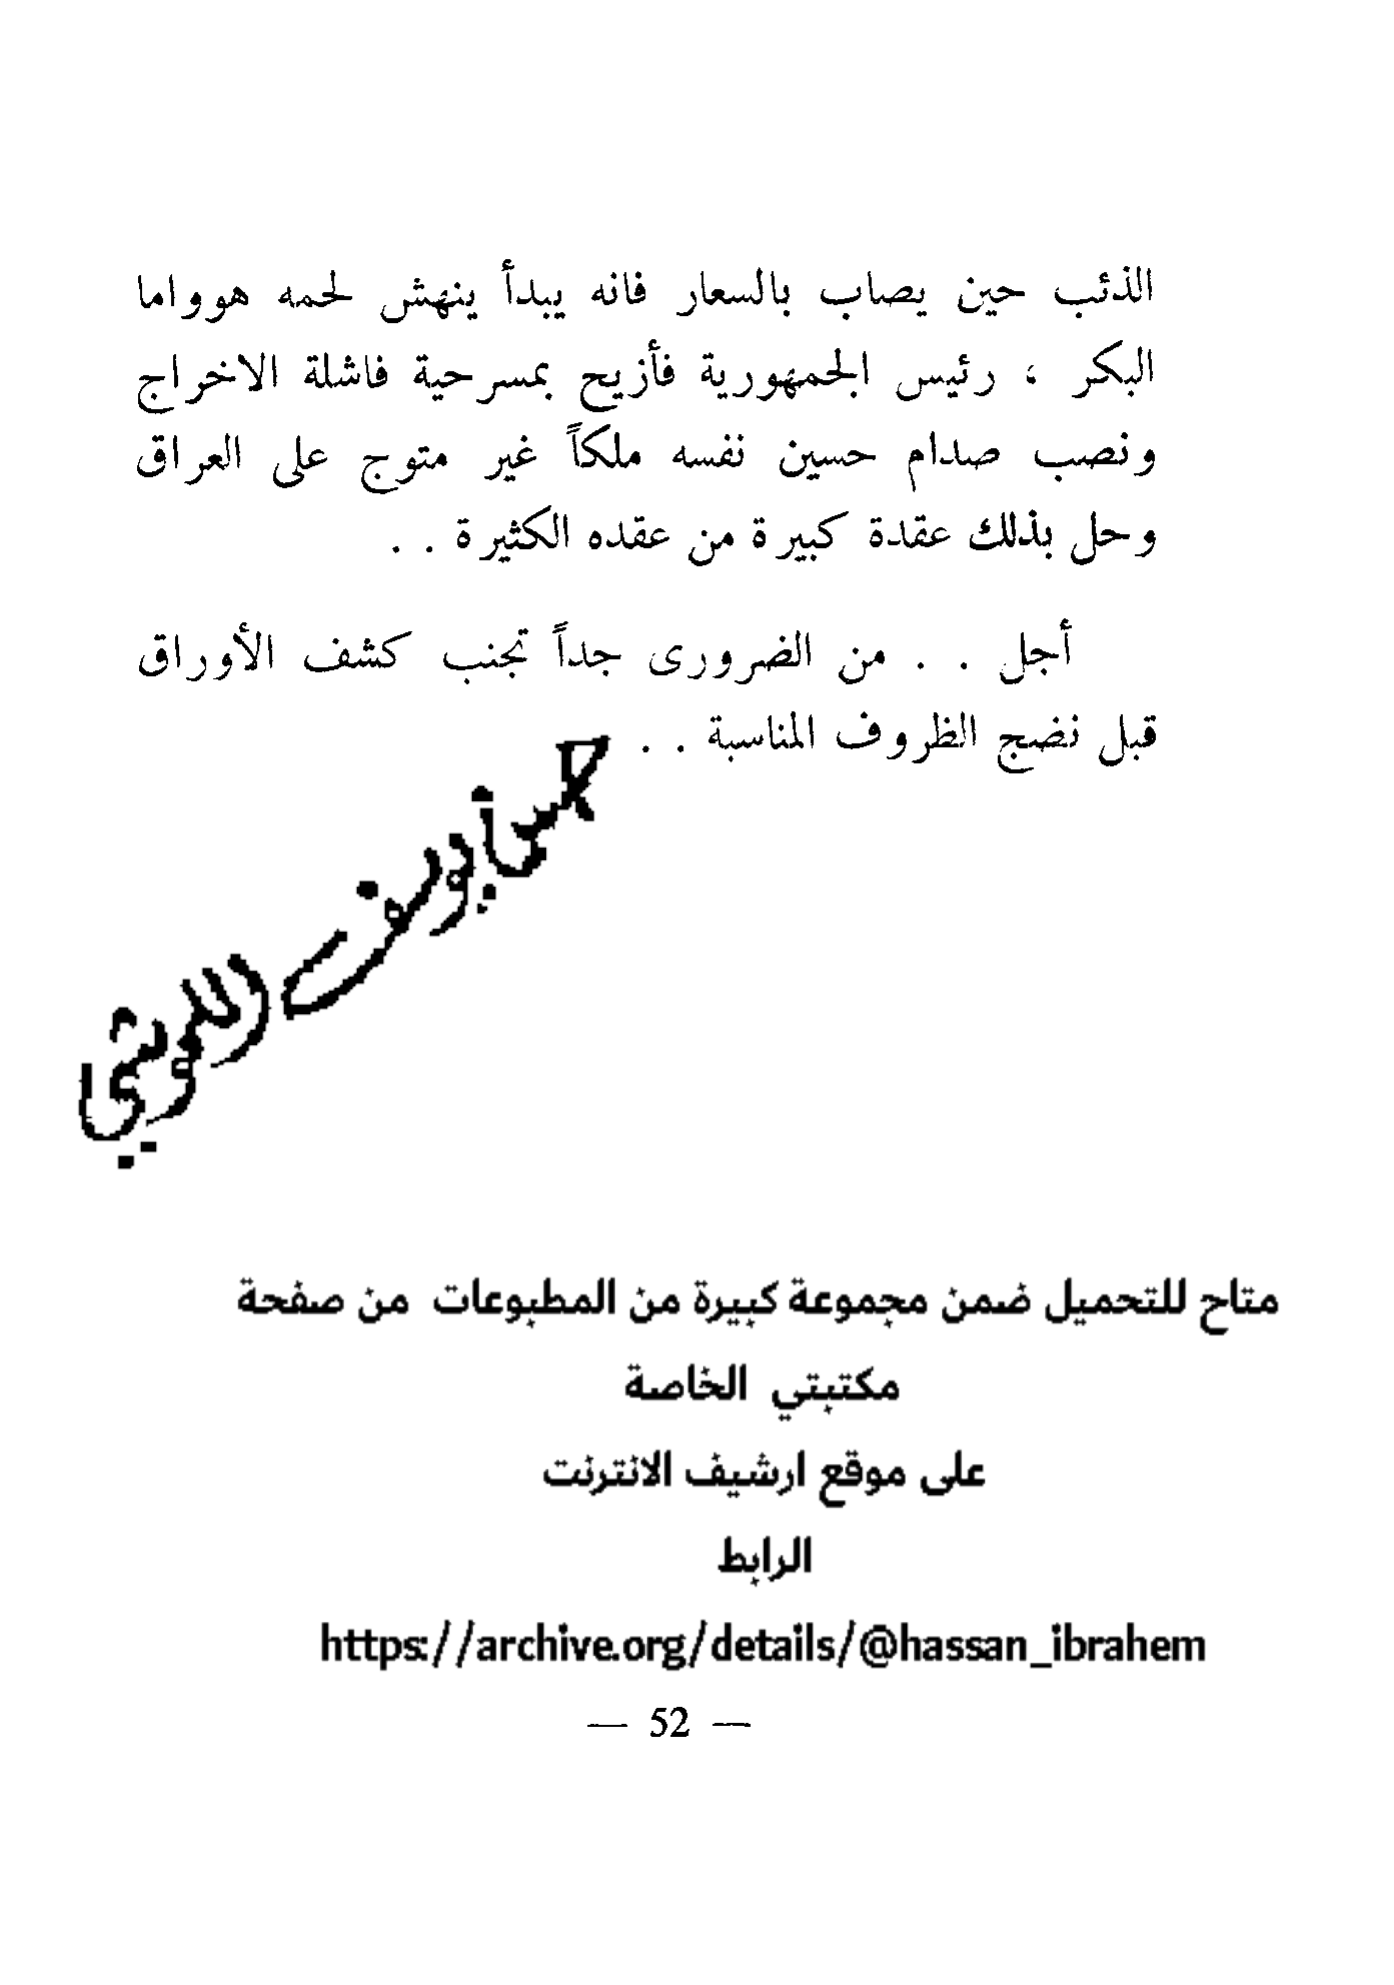 الذئب حين يصاب بالسعار فانه يبدأ ينهش لحمه هوواما
البكر ، رئيس الجمهورية فأزيح بمسرحية فاشلة الاخراج
ونصب صدام حسين نفسه ملكاً غير متوج على العراق
وحل بذلك عقدة كبيرة من عقده الكثيرة . .
أجل . . من الضرورى جداً تجنب كشف الأوراق
قبل نضج الظروف المناسبة . .
متاح للتحميل ضمن مجموعة كبيرة من المطبوعات من صفحة
مكتبتي الخاصة
على موقع ارشيف الانترنت
الرابط
https://archive.org/details/@hassan_ibrahem
— 52 —